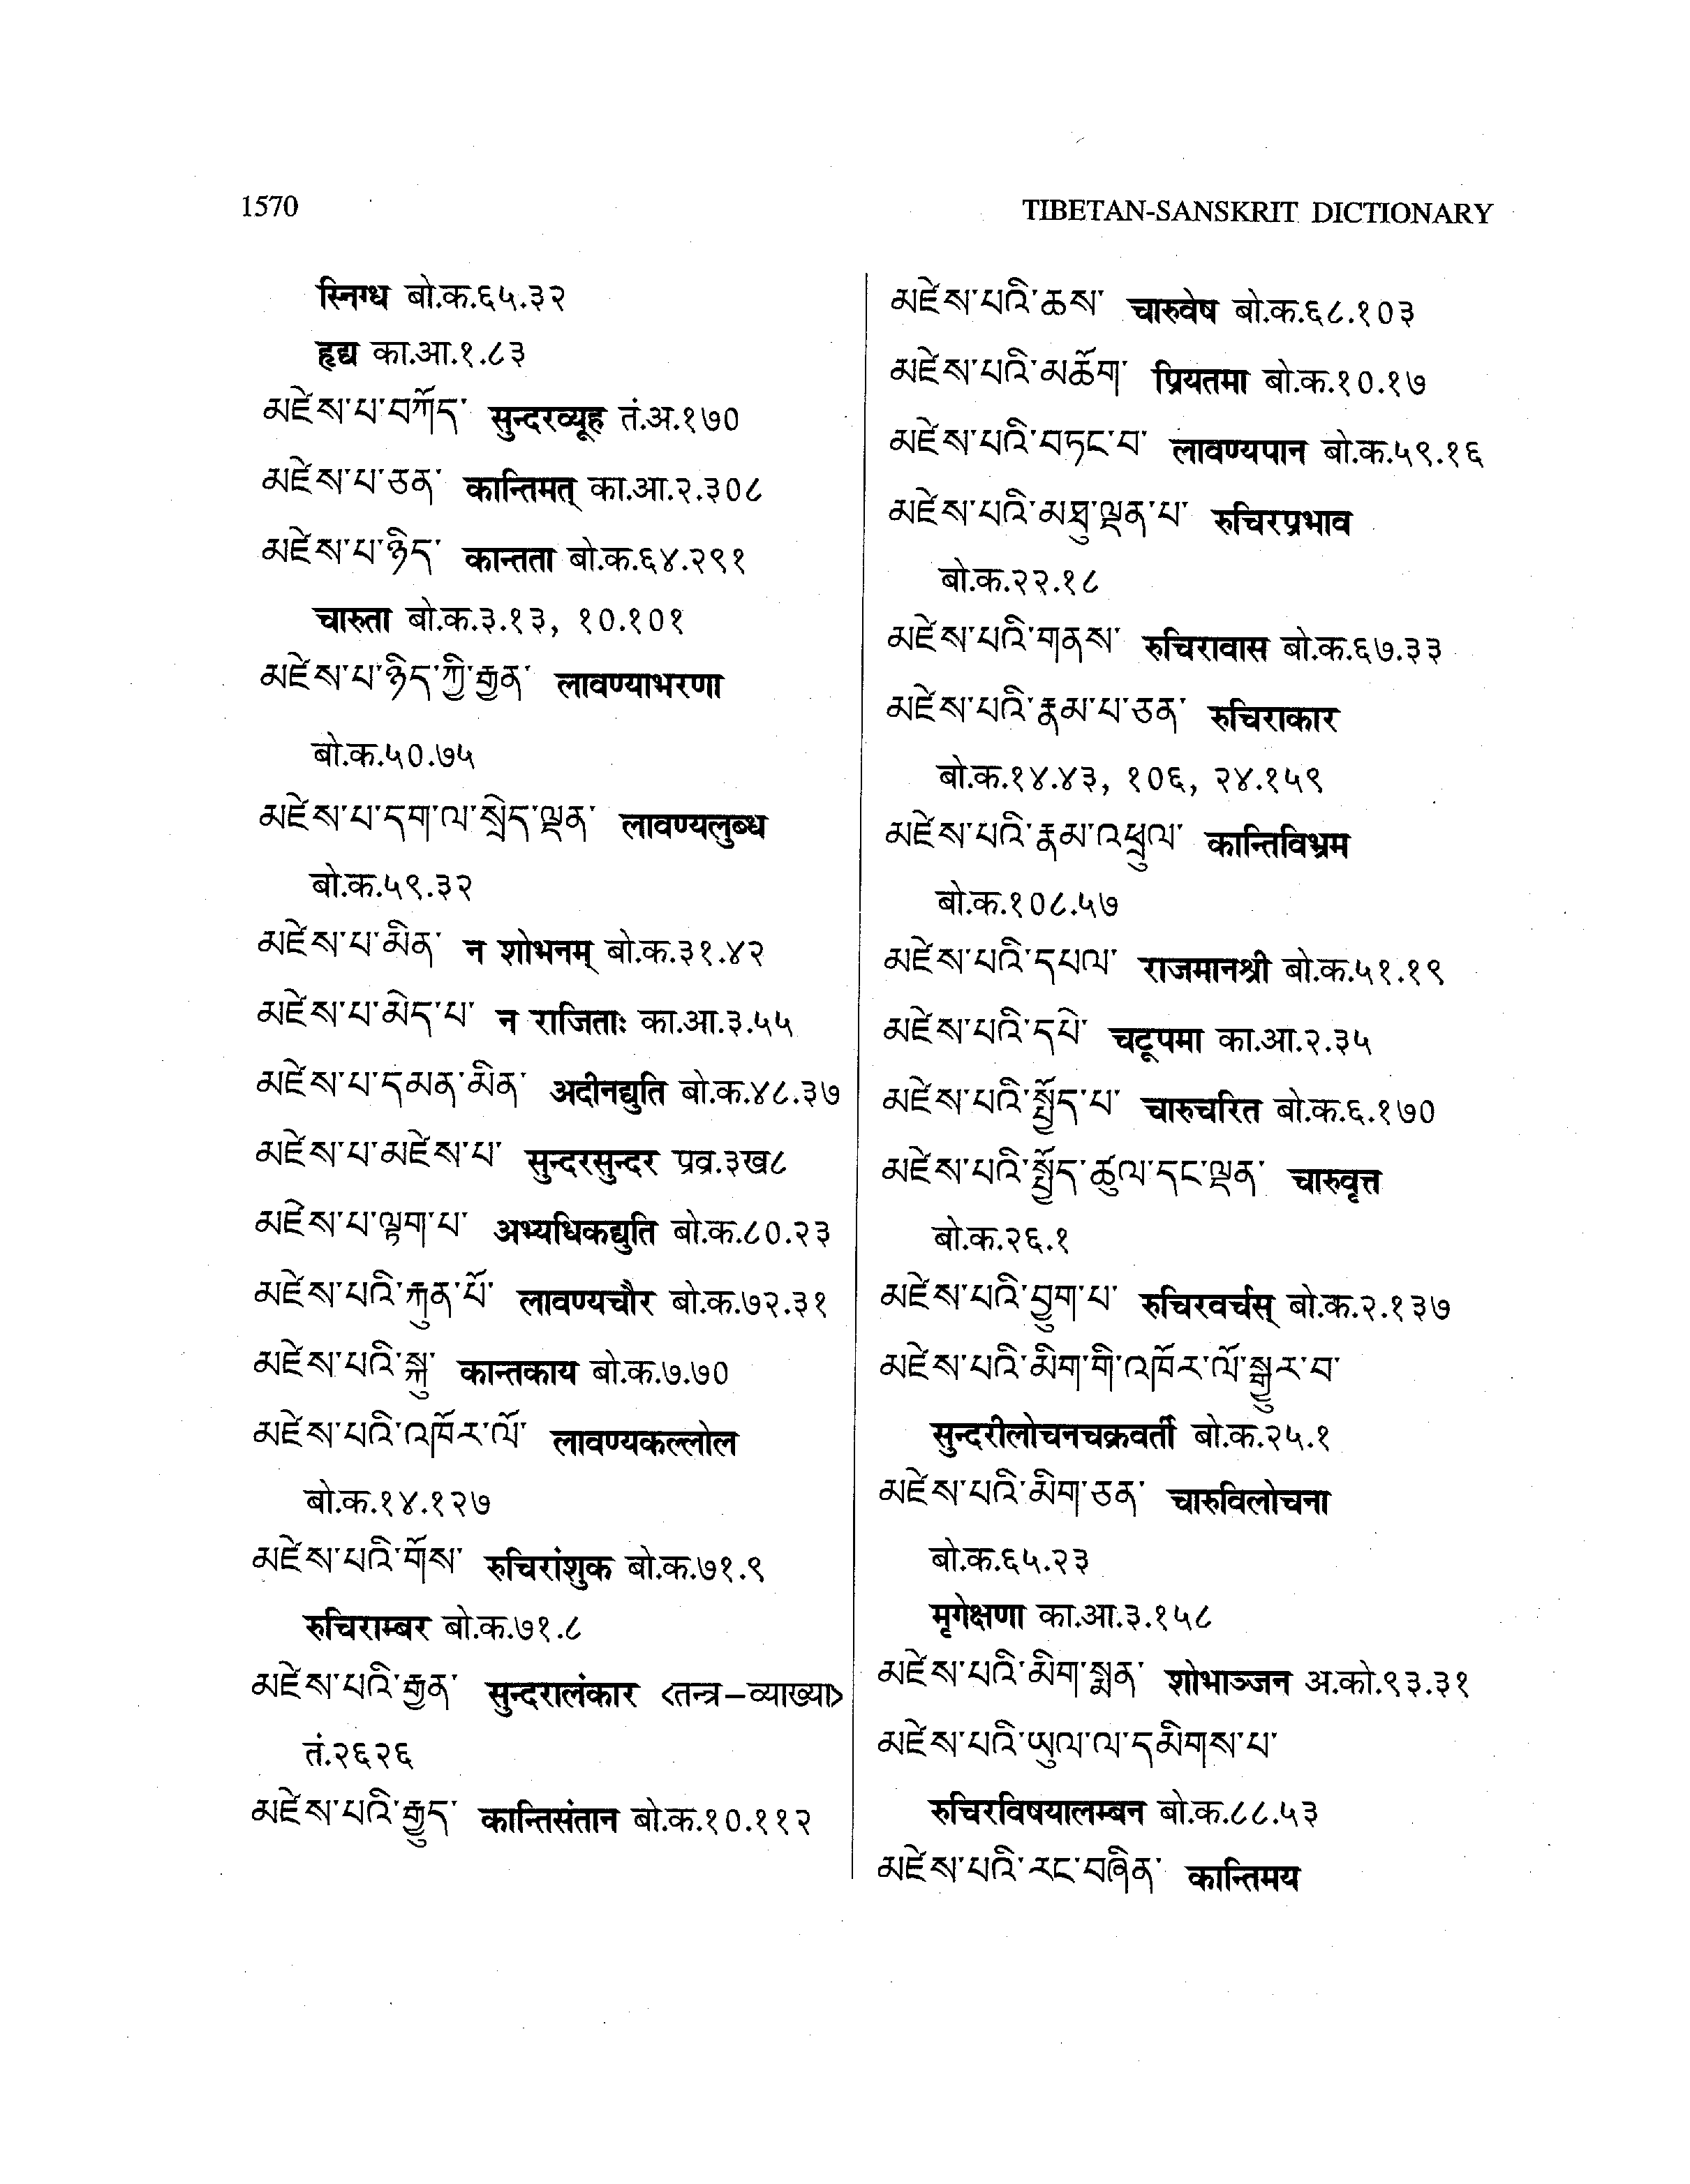 1570
TIBETAN-SANSKRIT DICTIONARY
स्निग्ध बो.क.६५.३२
हृद्य का.आ.१.८३
མཛེས་པ་བཀོད་ सुन्दरव्यूह तं.अ.१७०
མཛེས་པ་ཅན་ कान्तिमत् का.आ.२.३०८
མཛེས་པ་ཉིད་ कान्तता बो.क.६४.२९१
चारुता बो.क.३.१३, १०.१०१
མཛེས་པ་ཉིད་ཀྱི་རྒྱན་ लावण्याभरणा
बो.क.५०.७५
མཛེས་པ་དག་ལ་སྲེད་ལྡན་ लावण्यलुब्ध
बो.क.५९.३२
མཛེས་པ་མིན་ न शोभनम् बो.क.३१.४२
མཛེས་པ་མེད་པ་ न राजिताः का.आ.३.५५
མཛེས་པ་དམན་མིན་ अदीनद्युति बो.क.४८.३७
མཛེས་པ་མཛེས་པ་ सुन्दरसुन्दर प्रव्र.३ख८
མཛེས་པ་ལྷག་པ་ अभ्यधिकद्युति बो.क.८०.२३
མཛེས་པའི་རྐུན་པོ་ लावण्यचौर बो.क.७२.३१
མཛེས་པའི་སྐུ་ कान्तकाय बो.क.७.७०
མཛེས་པའི་འཁོར་ལོ་ लावण्यकल्लोल
बो.क.१४.१२७
མཛེས་པའི་གོས་ रुचिरांशुक बो.क.७१.९
रुचिराम्बर बो.क.७१.८
མཛེས་པའི་རྒྱན་ सुन्दरालंकार <तन्त्र-व्याख्या>
तं.२६२६
མཛེས་པའི་རྒྱུད་ कान्तिसंतान बो.क.१०.११२
མཛེས་པའི་ཆས་ चारुवेष बो.क.६८.१०३
མཛེས་པའི་མཆོག་ प्रियतमा बो.क.१०.१७
མཛེས་པའི་བཏུང་བ་ लावण्यपान बो.क.५९.१६
མཛེས་པའི་མཐུ་ལྡན་པ་ रुचिरप्रभाव
बो.क.२२.१८
མཛེས་པའི་གནས་ रुचिरावास बो.क.६७.३३
མཛེས་པའི་རྣམ་པ་ཅན་ रुचिराकार
बो.क.१४.४३, १०६, २४.१५९
མཛེས་པའི་རྣམ་འཕྲུལ་ कान्तिविभ्रम
बो.क.१०८.५७
མཛེས་པའི་དཔལ་ राजमानश्री बो.क.५१.१९
མཛེས་པའི་དཔེ་ चटूपमा का.आ.२.३५
མཛེས་པའི་སྤྱོད་པ་ चारुचरित बो.क.६.१७०
མཛེས་པའི་སྤྱོད་ཚུལ་དང་ལྡན་ चारुवृत्त
बो.क.२६.१
མཛེས་པའི་བྱུག་པ་ रुचिरवर्चस् बो.क.२.१३७
མཛེས་པའི་མིག་གི་འཁོར་ལོ་སྒྱུར་བ་
सुन्दरीलोचनचक्रवर्ती बो.क.२५.१
མཛེས་པའི་མིག་ཅན་ चारुविलोचना
बो.क.६५.२३
मृगेक्षणा का.आ.३.१५८
མཛེས་པའི་མིག་སྨན་ शोभाञ्जन अ.को.९३.३१
མཛེས་པའི་ཡུལ་ལ་དམིགས་པ་
रुचिरविषयालम्बन बो.क.८८.५३
མཛེས་པའི་རང་བཞིན་ कान्तिमय